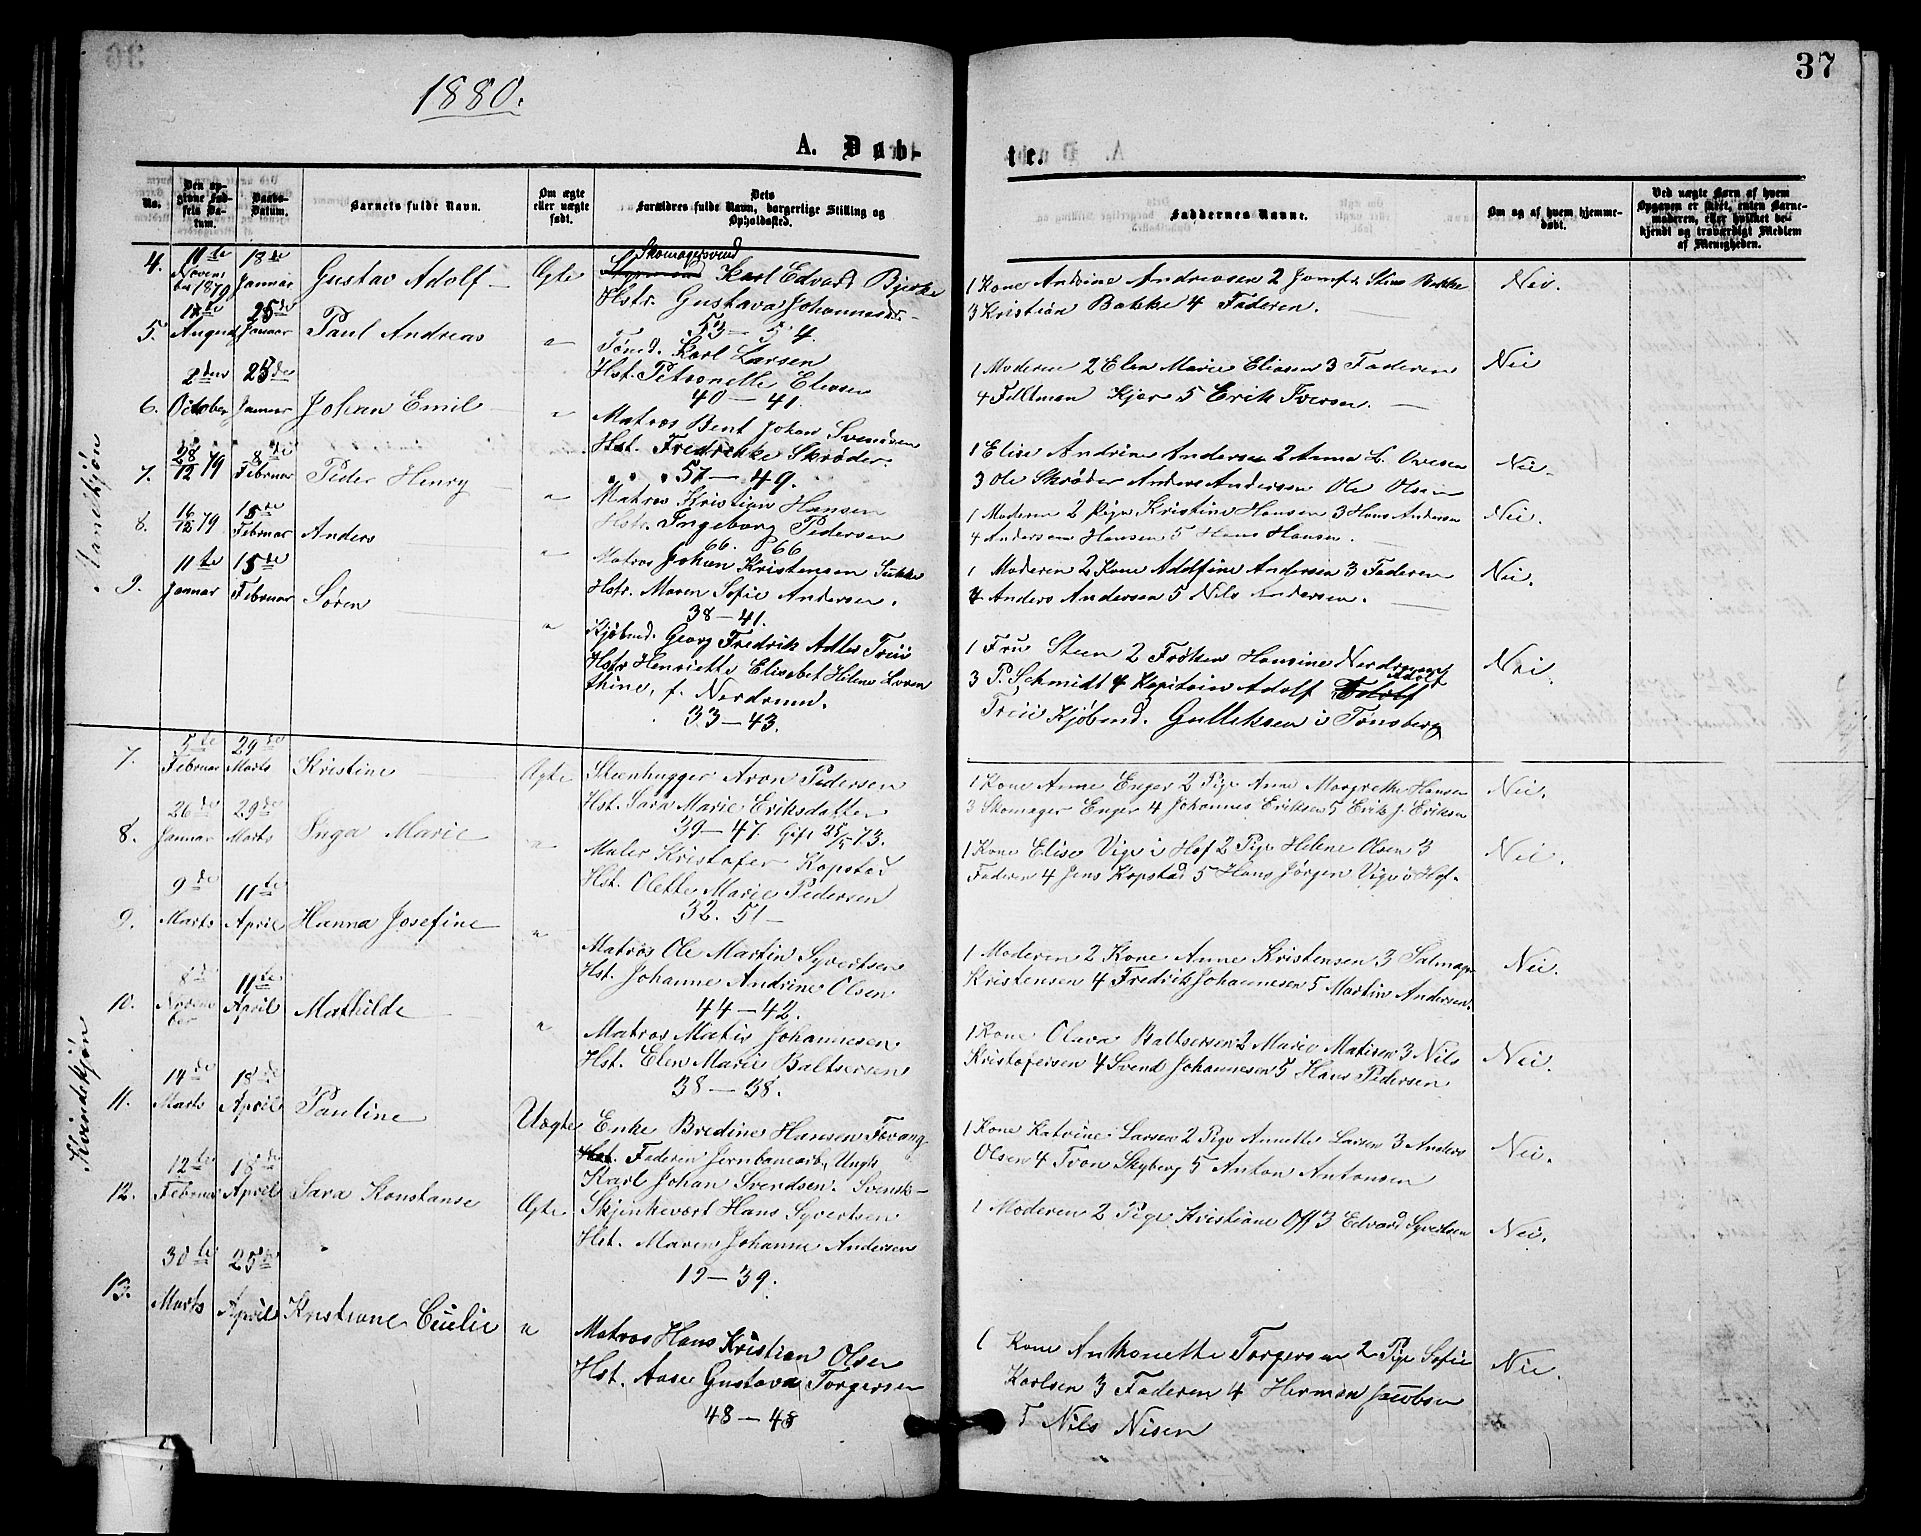 1880.
37
A. Døb-
te.
No.
Den op-
givne Fød-
sels Da-
tum.
Daabs-
Datum.
Barnets fulde Navn.
Om ægte
eller uægte
født.
Dets
Forældres fulde Navn, borgerlige Stilling og
Opholdssted.
Faddernes Navne.
Om og af hvem hjemme-
døbt.
Ved uægte Børn af hvem
Opgaven er skeet, enten Barne-
moderen, eller hvilket be-
kjendt og troværdigt Medlem
af Menigheden.
Mandkjøn
4. 11te Novem ber 1879 18de Januar Gustav Adolf Ægte
Skomagersvend
Karl Edvard Bjerke
Hstr. Gustava Johannesdr.
53 — 54
1 Kone Andrine Andreasen 2 Jomfr. Stine Bakke
3 Kristian Bakke 4 Faderen.
Nei.
5. August 25de Januar Paul Andreas "
Tømd. Karl Larsen
Hst. Petronelle Eliasen
40 — 41.
1 Moderen 2 Elen Marie Eliasen 3 Faderen
4 Feltman Kjær 5 Erik Iversen.
Nei
6. 2den October 25de Januar Johan Emil "
Matros Bent Johan Svendsen
Hst. Fredrikke Skrøder.
51 — 49.
1 Elise Andrine Andersen 2 Anna L. Ovesen
3 Ole Skrøder Anders Andersen Ole Olsen
Nei.
7. 28/12 79 8de Februar Peder Henry "
Matros Kristian Hansen
Hstr. Ingeborg Pedersen
66. 66
1 Moderen 2 Pige Kristine Hansen 3 Hans Andersen
4 Andersen Hansen 5 Hans Hansen.
Nei.
8. 16/12 79 15de Februar Anders "
Matros Johan Kristensen Sukke
Hstr. Maren Sofie Andersen.
38 — 41.
1 Moderen 2 Kone Adolfine Andersen 3 Faderen
4 Anders Andersen 5 Nils Andersen.
Nei.
9. 11te Januar 15de Februar Søren "
Kjøbmd. Georg Fredrik Adler Treii
Hstr Henriette Elisabet Helene Loren
thine, f. Nordrum.
33 — 43.
1 Fru Steen 2 Frøken Hansine Nordrum
3 P. Schmidt 4 Kapitain Adolf
Treii Kjøbmd. Gulliksen i Tønsberg
Nei.
Kvindekjøn
7. 5te Februar 29de Marts Kristine Ægte
Steenhugger Aron Pedersen
Hst. Sara Marie Eriksdatter
39 — 47. Gift 25/5 73.
1 Kone Anne Enger 2 Pige Anne Margrethe Hansen
3 Skomager Enger 4 Johannes Eriksen 5 Erik J. Eriksen
Nei.
8. 26de Januar 29de Marts Inga Marie "
Maler Kristofer Kopstad
Hst. Olette Marie Pedersen
32. 51 —
1 Kone Elise Vige i Hof 2 Pige Helene Olsen 3
Faderen 4 Jens Kopstad 5 Hans Jørgen Vige i Hof.
Nei.
9. 9de Marts 11te April Hanna Josefine "
Matros Ole Martin Syvertsen
Hst. Johanne Andrine Olsen
44 — 42.
1 Moderen 2 Kone Anne Kristensen 3 Salmager
Kristensen 4 Fredrik Johannesen 5 Martin Andersen.
Nei.
10. 8de Novem ber 11te April Mathilde "
Matros Matis Johannesen
Hst. Elen Marie Baltsersen
38 — 38.
1 Kone Olava Baltsersen 2 Marie Matisen 3 Nils
Kristofersen 4 Svend Johannesen 5 Hans Pedersen
Nei.
11. 14de Marts 18de April Pauline Uægte
Enke Bredine Hansen Tovang
Hst. Faderen Jernbanearb. Ungk
Karl Johan Svendsen. Svensk —
1 Kone Katrine Larsen 2 Pige Annette Larsen 3 Anders
Olsen 4 Tron Skyberg 5 Anton Antonsen
Nei.
12. 12te Februar 18de April Sara Konstanse Ægte
Skjenkevært Hans Syvertsen
Hst. Maren Johanne Andersen
19 — 39.
1 Moderen 2 Pige Kristiane Off 3 Edvard Syvertsen
Nei.
13. 30te Marts 25de April Kristiane Cecilie "
Matros Hans Kristian Olsen
Hst. Aase Gustava Torgersen
48 — 48
1 Kone Anthonette Torgersen 2 Pige Sofie
Karlsen 3 Faderen 4 Herman Jacobsen
5 Nils Nisen
Nei.